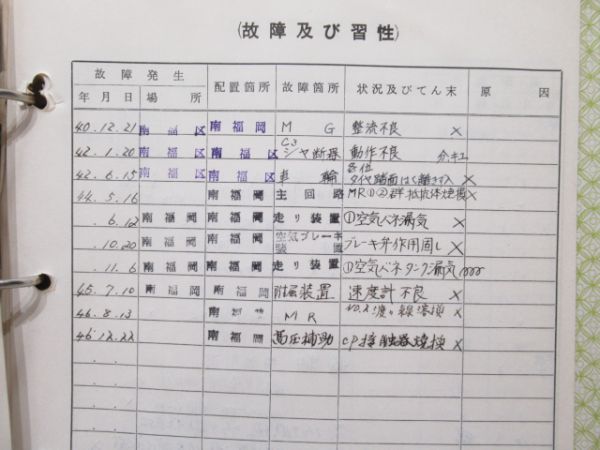 (故障及び習性)
故障発生 配置箇所 故障箇所 状況及びてん末 原因
年月日 場所
40.12.21 南福区 南福岡 MG 整流不良 ×
42.1.20 南福区 南福区 C3 シヤ断器 動作不良
42.6.15 南福区 南福区 車輪 各位 タイヤ踏面はく離
44.5.16 南福岡 主回路 MR①② 抵抗体焼損 ×
6.12 南福岡 南福岡 走り装置 ①空気バネ漏気 ×
.10.20 南福岡 南福岡 空気ブレーキ装置 ブレーキ弁作用 ×
.11.6 南福岡 南福岡 走り装置 ①空気バネタンク漏気
45.7.10 南福岡 南福岡 附属装置 速度計不良 ×
46.8.13 南福岡 MR NO.2 ×
46.12.22 南福岡 高圧補助 CP接触器焼損 ×